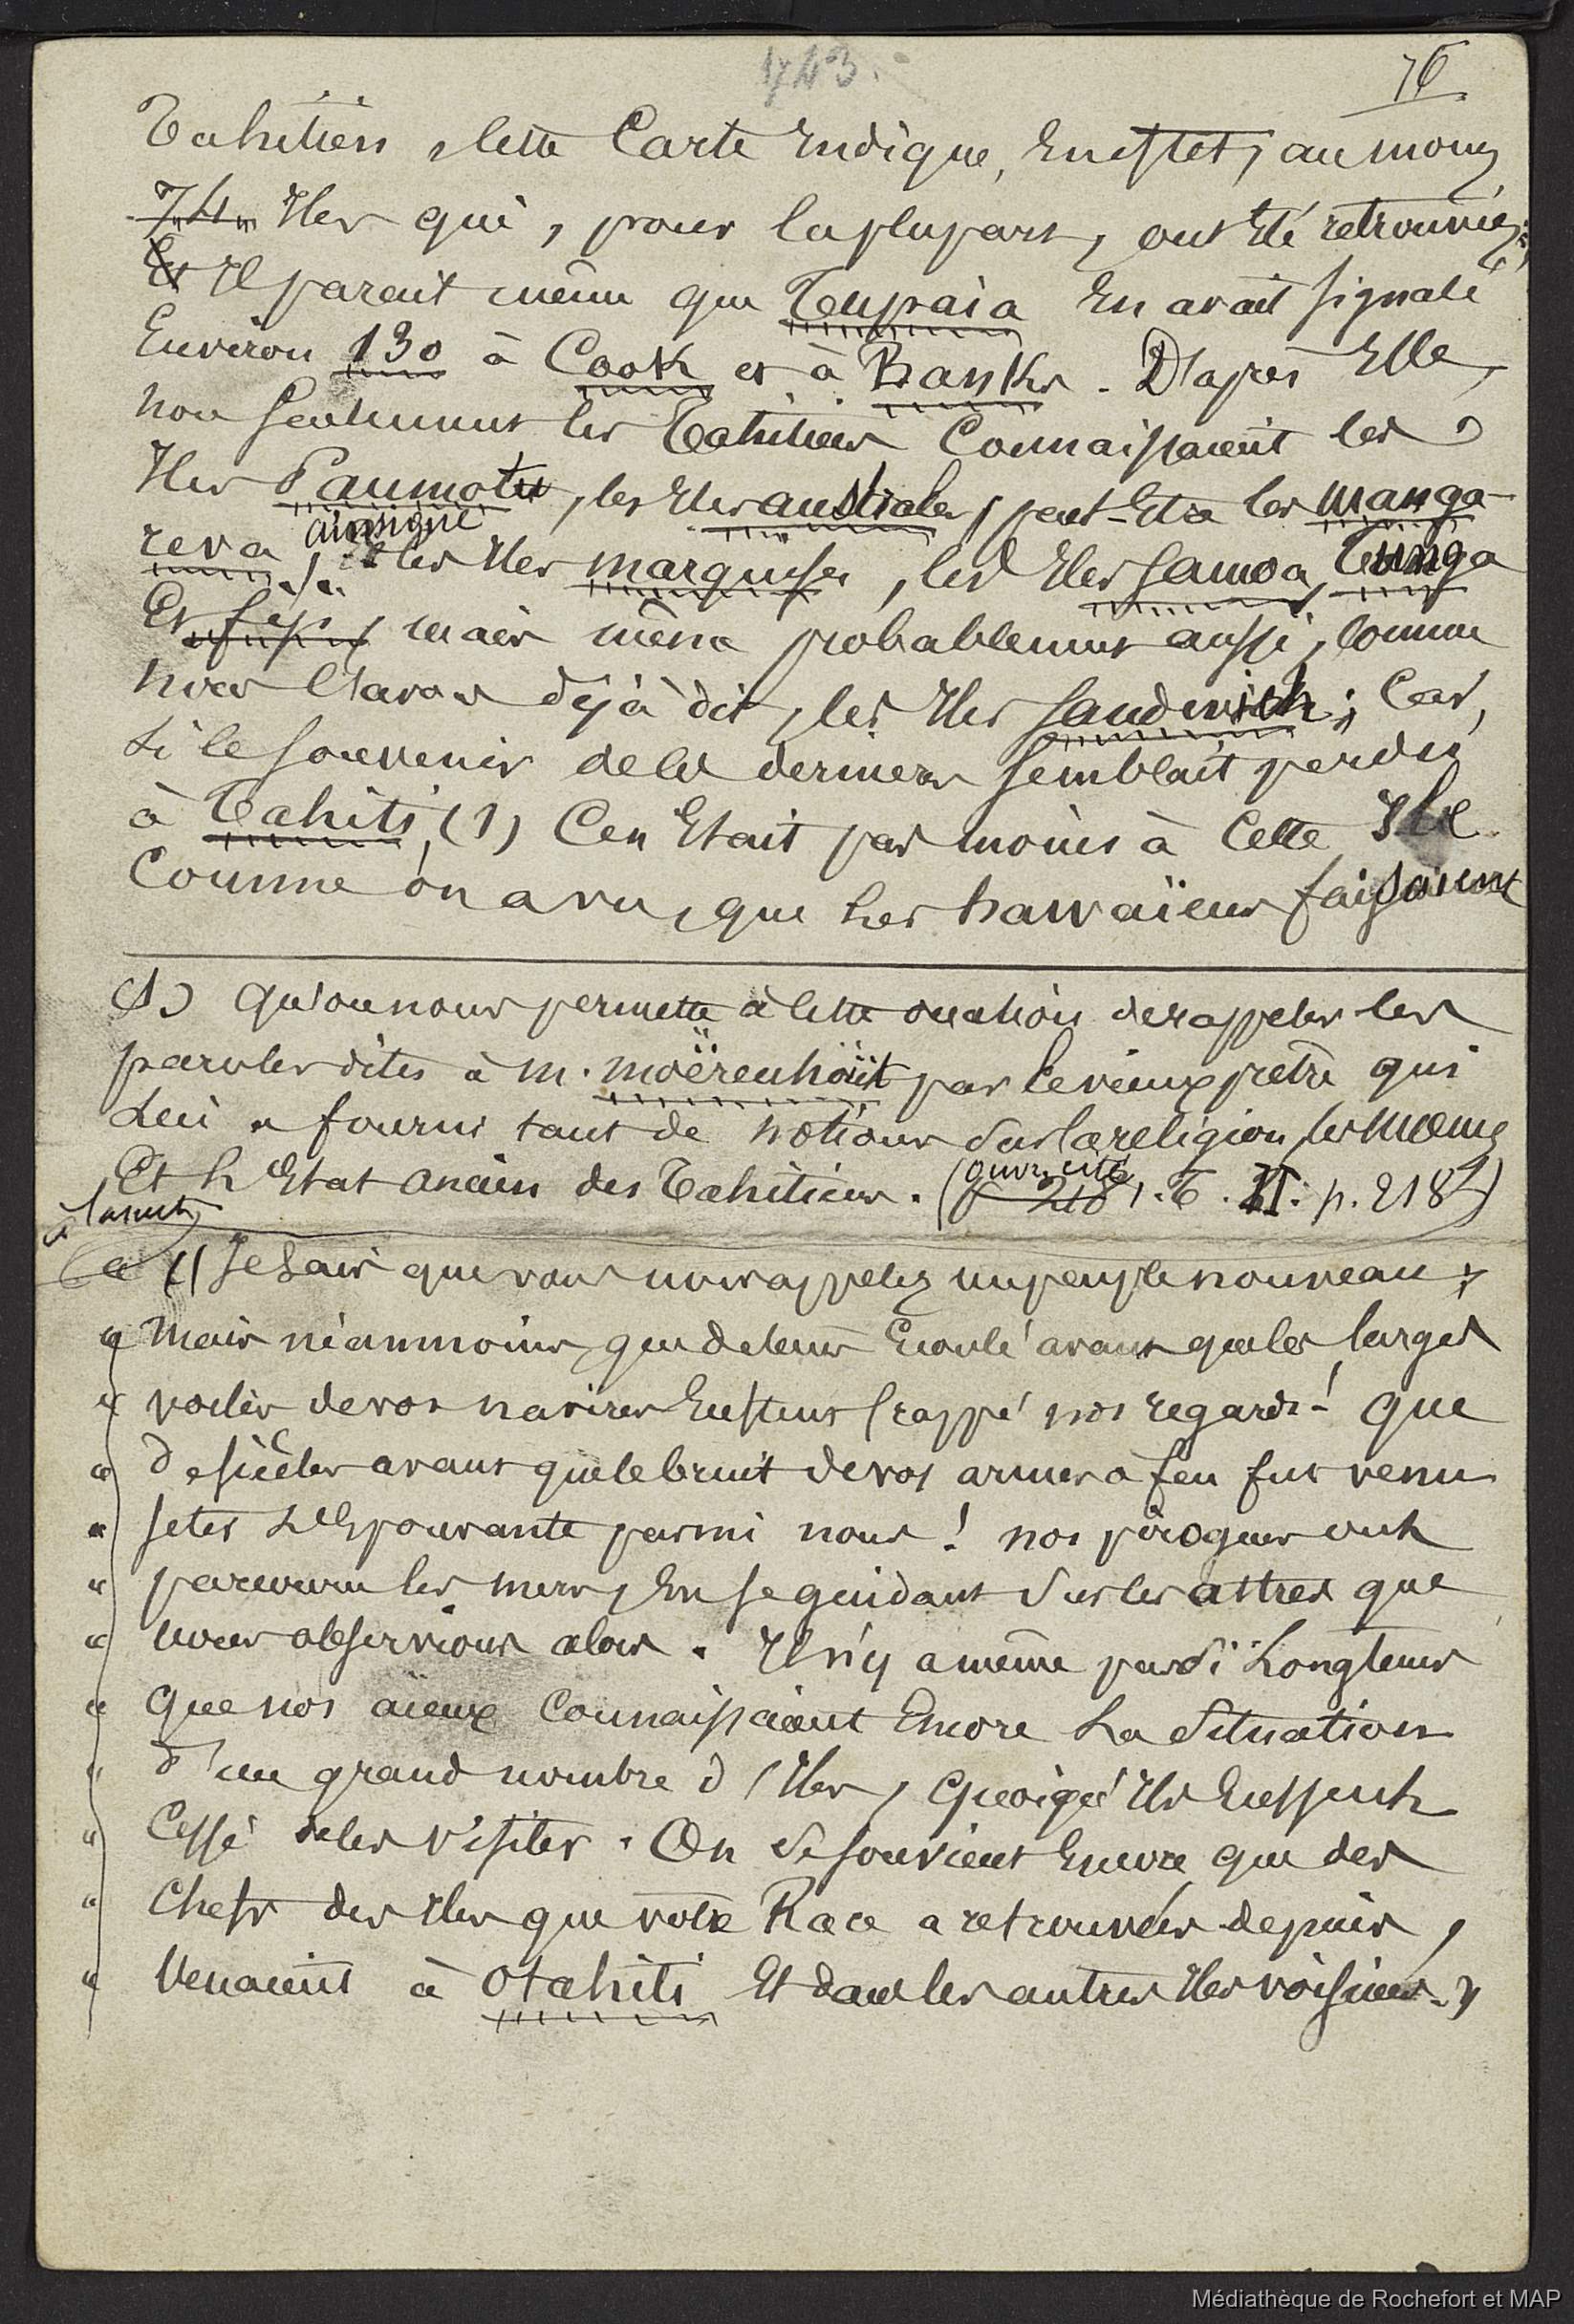 743.
76
Tahitiens, cette Carte Indique, En effet, au moins
74 Iles qui, pour la plupart, ont Eté retrouvées;
Et Il parait même que Tupaia En avait signalé
Environ 130 à Cook et à Banks. D'après Elle,
non seulement les Tahitiens Connaissaient les
Iles Paumotu, les Iles australes, peut-Etre les manga-
reva, ainsi que les Iles marquises, les Iles Samoa, Tunga
Et fiji, mais même probablement aussi, Comme
nous l'avons déjà dit, les Iles Sandwich; Car,
si le souvenir de ces dernières semblait perdu
à Tahiti, (1) C'en Etait pas moins à Cette Ile
Comme on a vu, que les hawaïens faisaient
(1) qu'on nous permette à cette occasion de rappeler les
paroles dites à M. moërenhoüt par le vieux prêtre qui
lui a fourni tant de notions sur la religion, les moeurs
Et l'Etat ancien des Tahitiens. (ouvr. cité p 218, T. II. p. 218)
à la suite
« Je sais que vous nous appelez un peuple nouveau;
« Mais néanmoins, que de tems Ecoulé avant que les larges
« voiles de vos navires Eussent frappé nos regards! que
« de siècles avant que le bruit de vos armes à feu fut venu
« jeter l'Epouvante parmi nous! nos pirogues ont
« parcouru les mers, En se guidant sur les astres que
« nous observions alors. Il n'y a même pas si Longtems
« que nos aïeux Connaissaient Encore La Situation
« d'un grand nombre d'Iles, quoiqu'Ils Eussent
« Cessé de les visiter. On se souvient Encore que des
« Chefs des Iles que votre Race a retrouvées depuis,
« Venaient à Otahiti Et dans les autres Iles voisines. »
Médiathèque de Rochefort et MAP